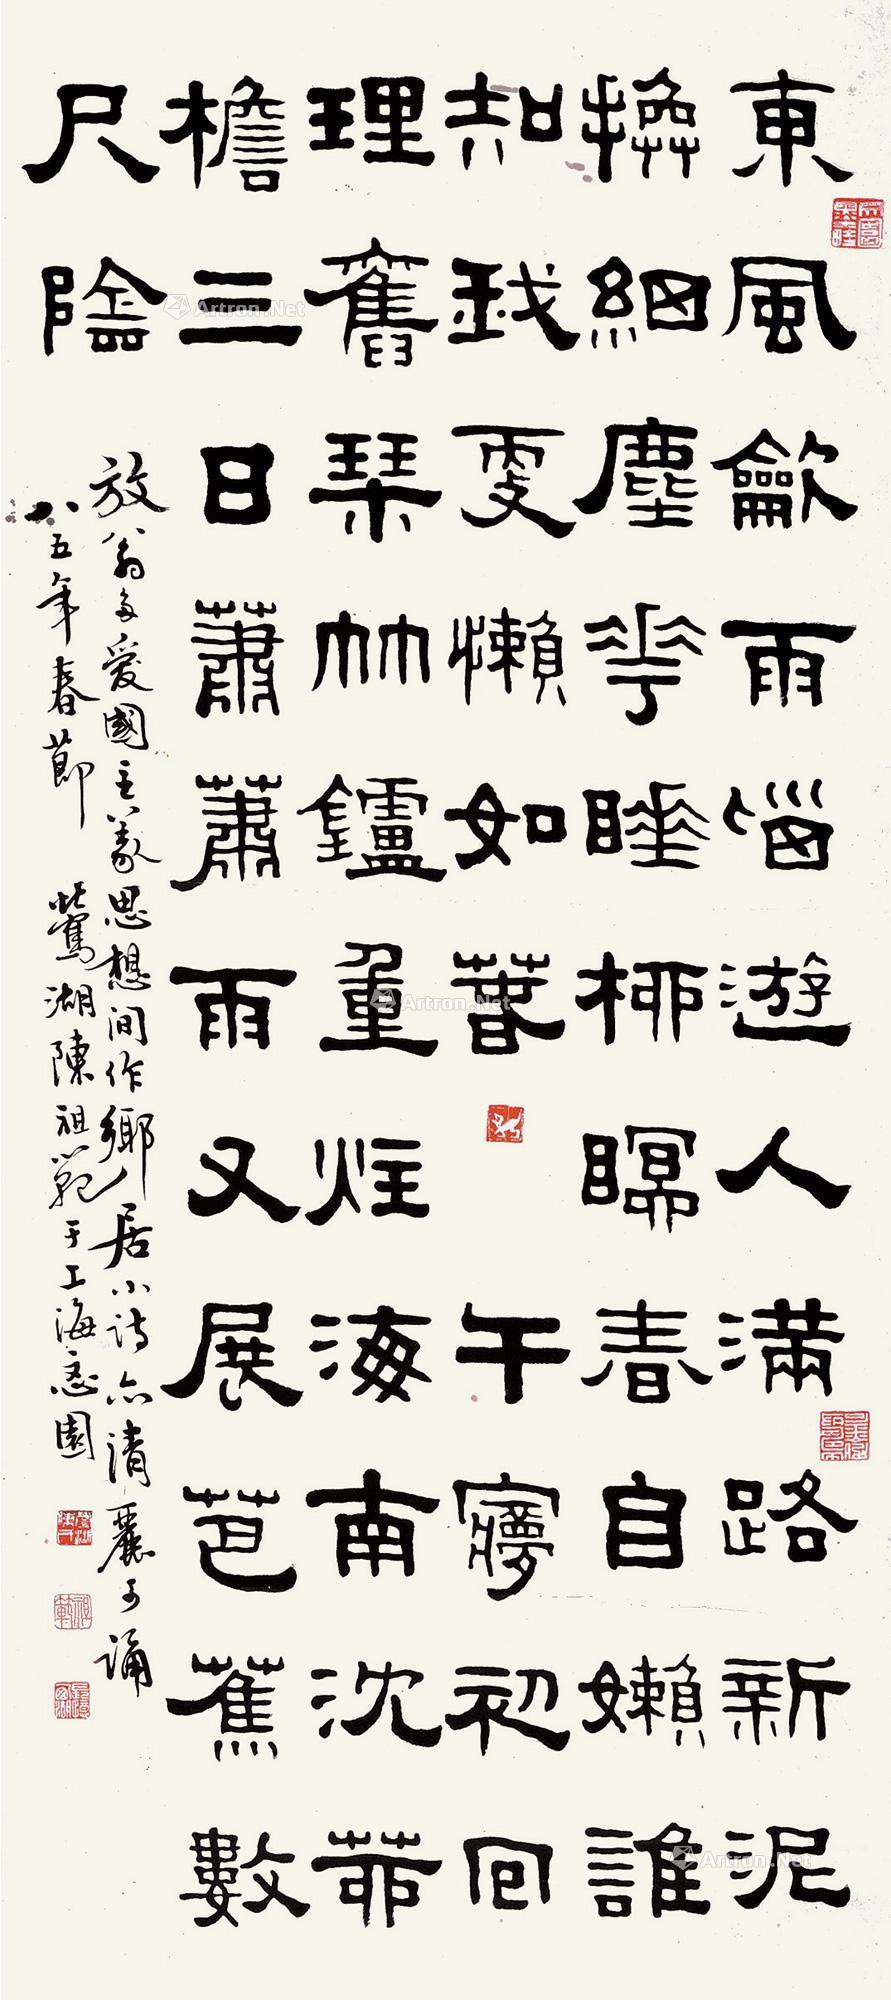 東風龡雨惱遊人滿路新泥
換細塵花睡柳瞑春自嬾誰
知我更懶如春 午寢初回
理舊琴竹鑪重炷海南沈茆
檐三日蕭蕭雨又展芭蕉數
尺陰
放翁多愛國主義思想间作鄉居小詩亦清麗可誦
八五年春節 鶯湖陳祖範于上海園
Artron.Net
Artron.Net
Artron.Net